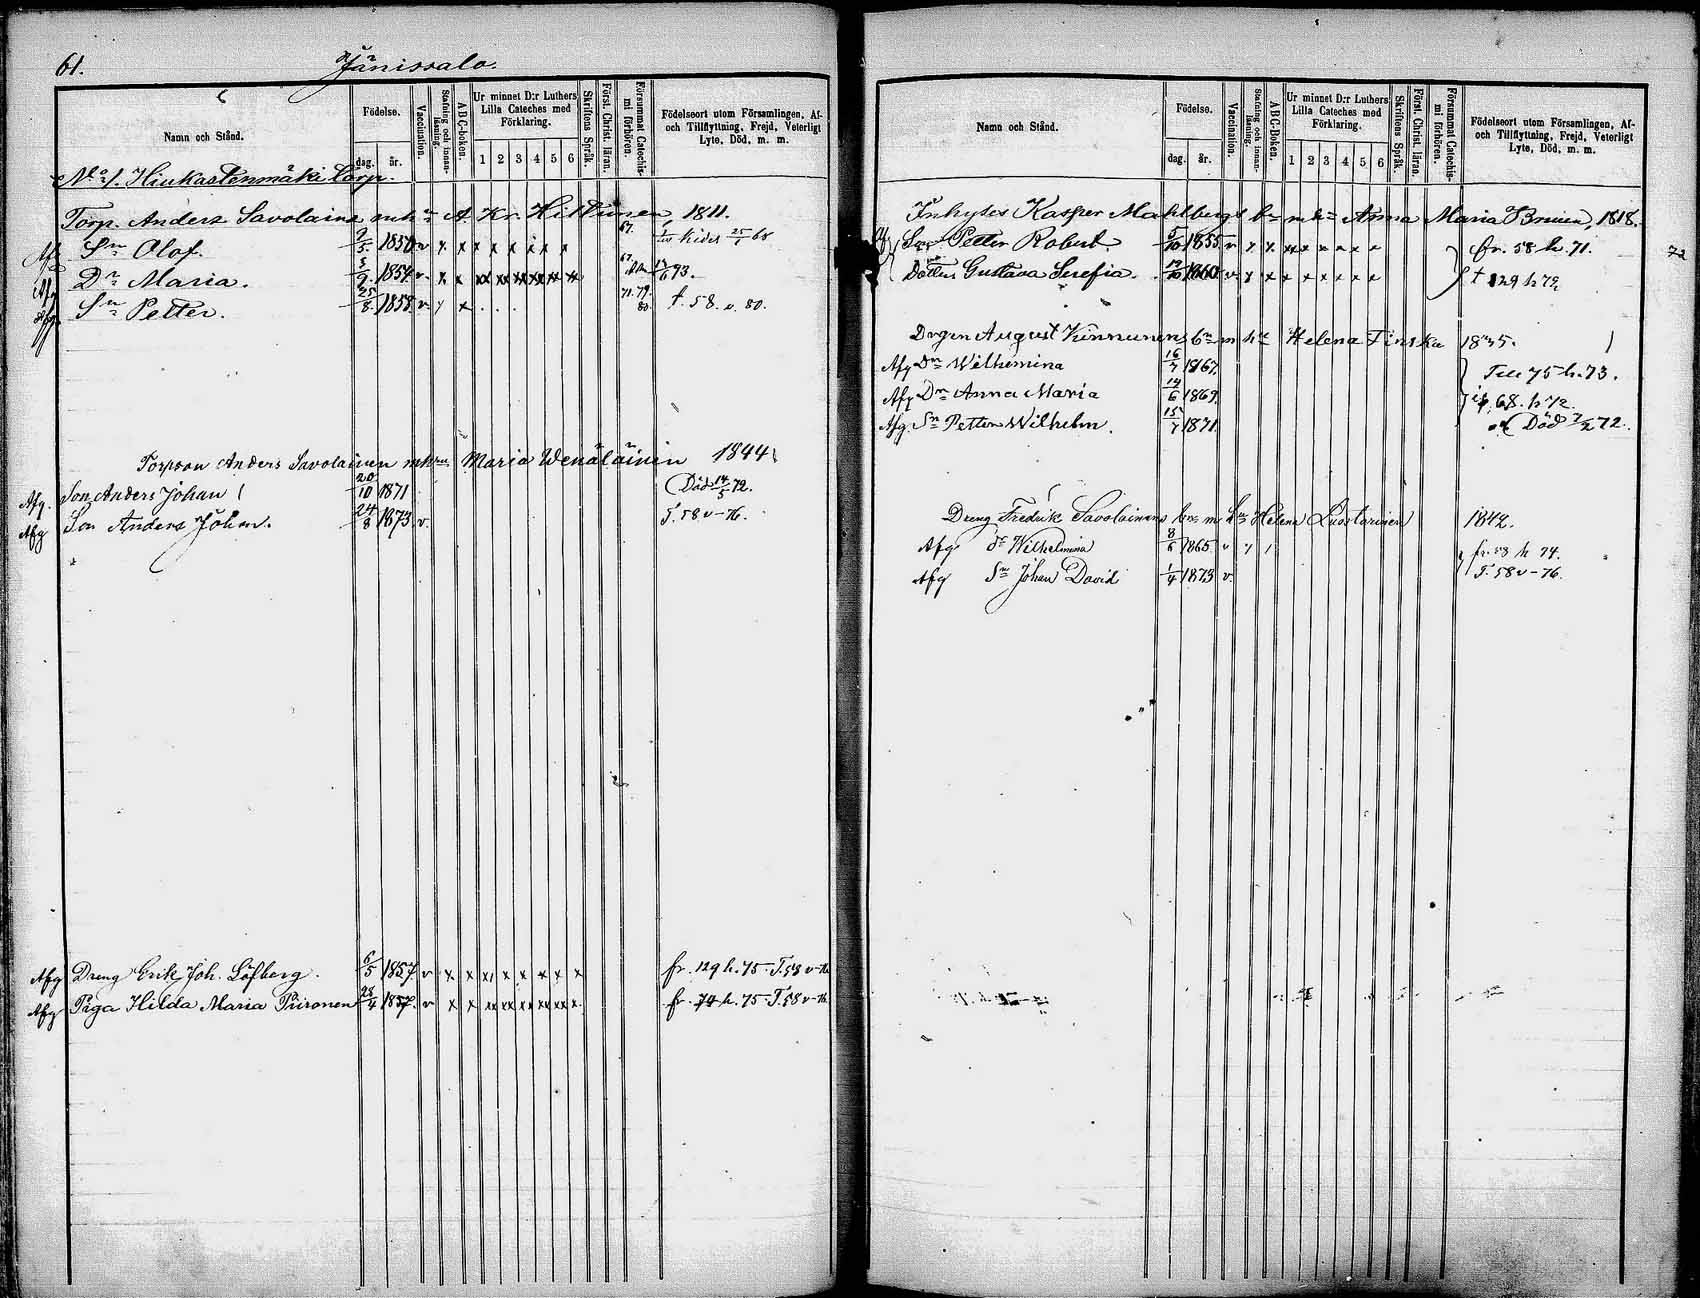 61. Jänissalo.
Namn och Stånd.
Födelse.
dag. år.
Vaccination.
Stafning och innanläsning.
ABC-boken.
Ur minnet D:r Luthers Lilla Cateches med Förklaring.
1 2 3 4 5 6
Skriftens Språk.
Först. Christ. läran.
Försummat Catechismi förhören.
Födelseort utom Församlingen, Af- och Tillflyttning, Frejd, Veterligt Lyte, Död, m. m.
No 1. Hiukastenmäki Torp.
Torp. Anders Savolainens mhu A. Kr. Hiltunen, 1811.
Sn Olof. 1850 v x x x x x x x 67. Kides 25/1 68
Dr Maria. 5/9 1854 v x x xx xx xx xx xx xx 67. 93.
Afg Sn Petter. 25/8 1858 v x 71. 79. 80. t. 58. v. 80.
Torpson Anders Savolainen mhru Maria Wenäläinen 1844
Afg. Son Anders Johan 20/10 1871 Död 14/5 72.
Afg Son Anders Johan. 24/8 1873 v. T. 58 v-76.
Afg Dreng Erik Joh. Löfberg. 6/5 1857. v x x x x x x x x fr. 129 h. 75. T. 58 v-76
Afg Piga Hilda Maria Piironen 28/4 1857. v x x xx xx xx xx xx x fr. 74 h. 75 T. 58 v-76
Namn och Stånd.
Födelse.
dag. år.
Vaccination.
Stafning och innanläsning.
ABC-Boken.
Ur minnet D:r Luthers Lilla Cateches med Förklaring.
1 2 3 4 5 6
Skriftens Språk.
Först. Christ. läran.
Försummat Catechismi förhören.
Födelseort utom Församlingen, Af- och Tillflyttning, Frejd, Veterligt Lyte, Död, m. m.
Inhyses Kasper Mahlbergs bn mhu Anna Maria 1818.
Sn Petter Robert 5/10 1855. v x x xx x x x x x fr. 58 h. 71. 72
Dotter Gustava Serefia. 1860 v x x x x x x x x t 129 h 72
Drgen August Kinnunens bn m hu Helena Finska 1835.
Afg Dr Wilhemina 16/7 1867. Till 75 h. 73.
Afg Dr Anna Maria 14/6 1869. 68. h 72.
Afg. Sn Petter Wilhelm. 15/7 1871 Död 7/2 72.
Dreng Fredrik Savolainens bn m hu Helena Luostarinen 1842.
Afg dr Wilhelmina 8/6 1865 v fr. 58 h 74.
Afg Sn Johan David 1/4 1873 v. T. 58 v-76.